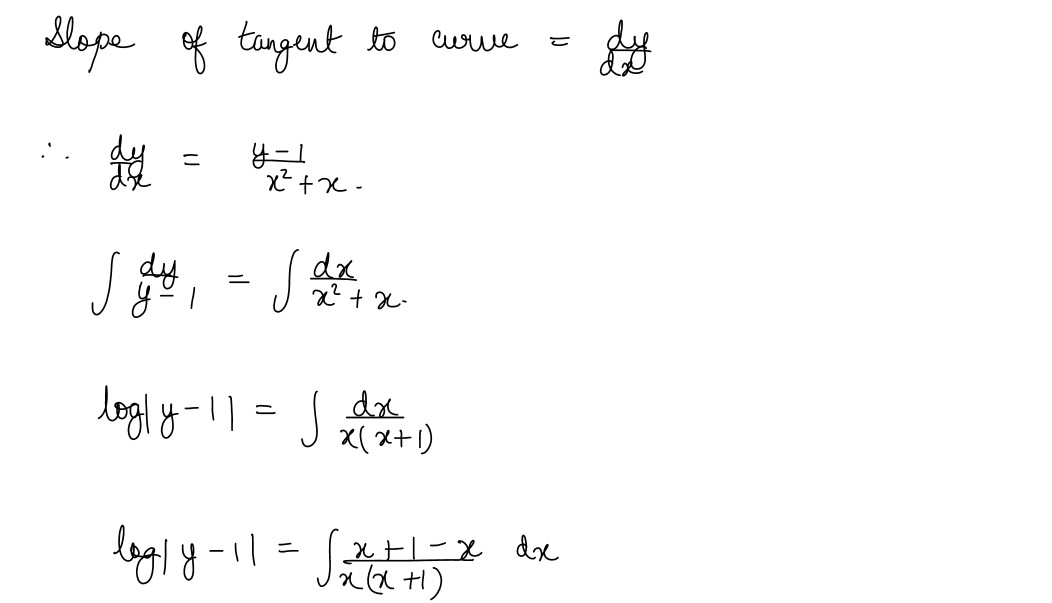 Slope of tangent to curve = dy/dx
∴ dy/dx = y-1/x²+x.
∫ dy/y-1 = ∫ dx/x²+x.
log|y-1| = ∫ dx/x(x+1)
log|y-1| = ∫ x+1-x/x(x+1) dx